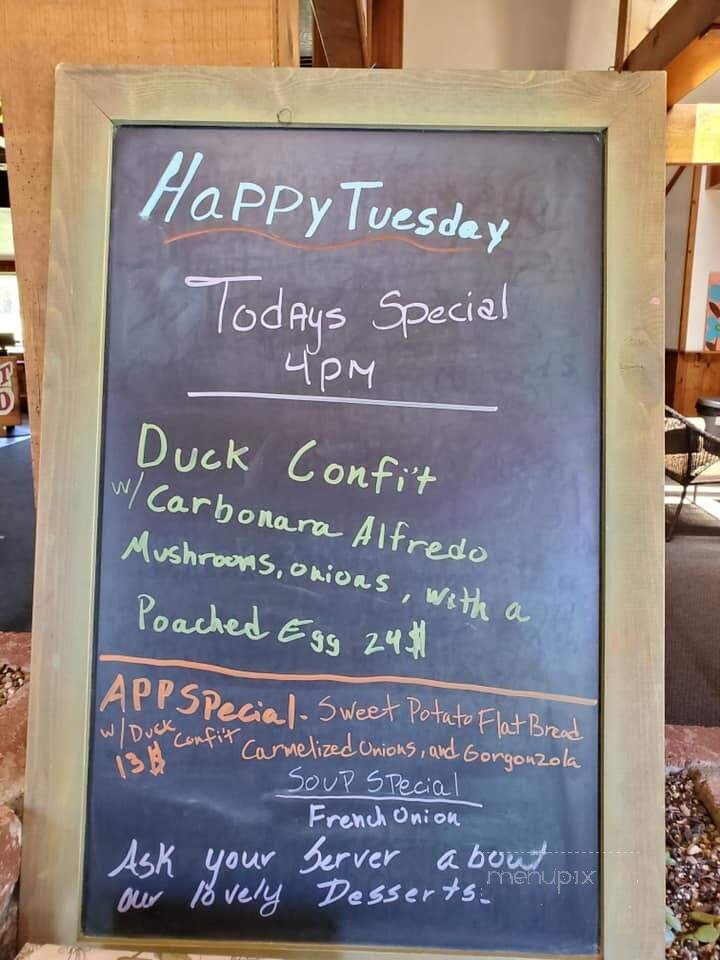 Happy Tuesday
Todays Special
4PM
Duck Confit
w/ Carbonara Alfredo
Mushrooms, onions, with a
Poached Egg 24$
APP Special - Sweet Potato Flat Bread
w/ Duck Confit Carmelized Onions, and Gorgonzola
13$
Soup Special
French Onion
Ask your Server about
our lovely Desserts.
menupix
T
D